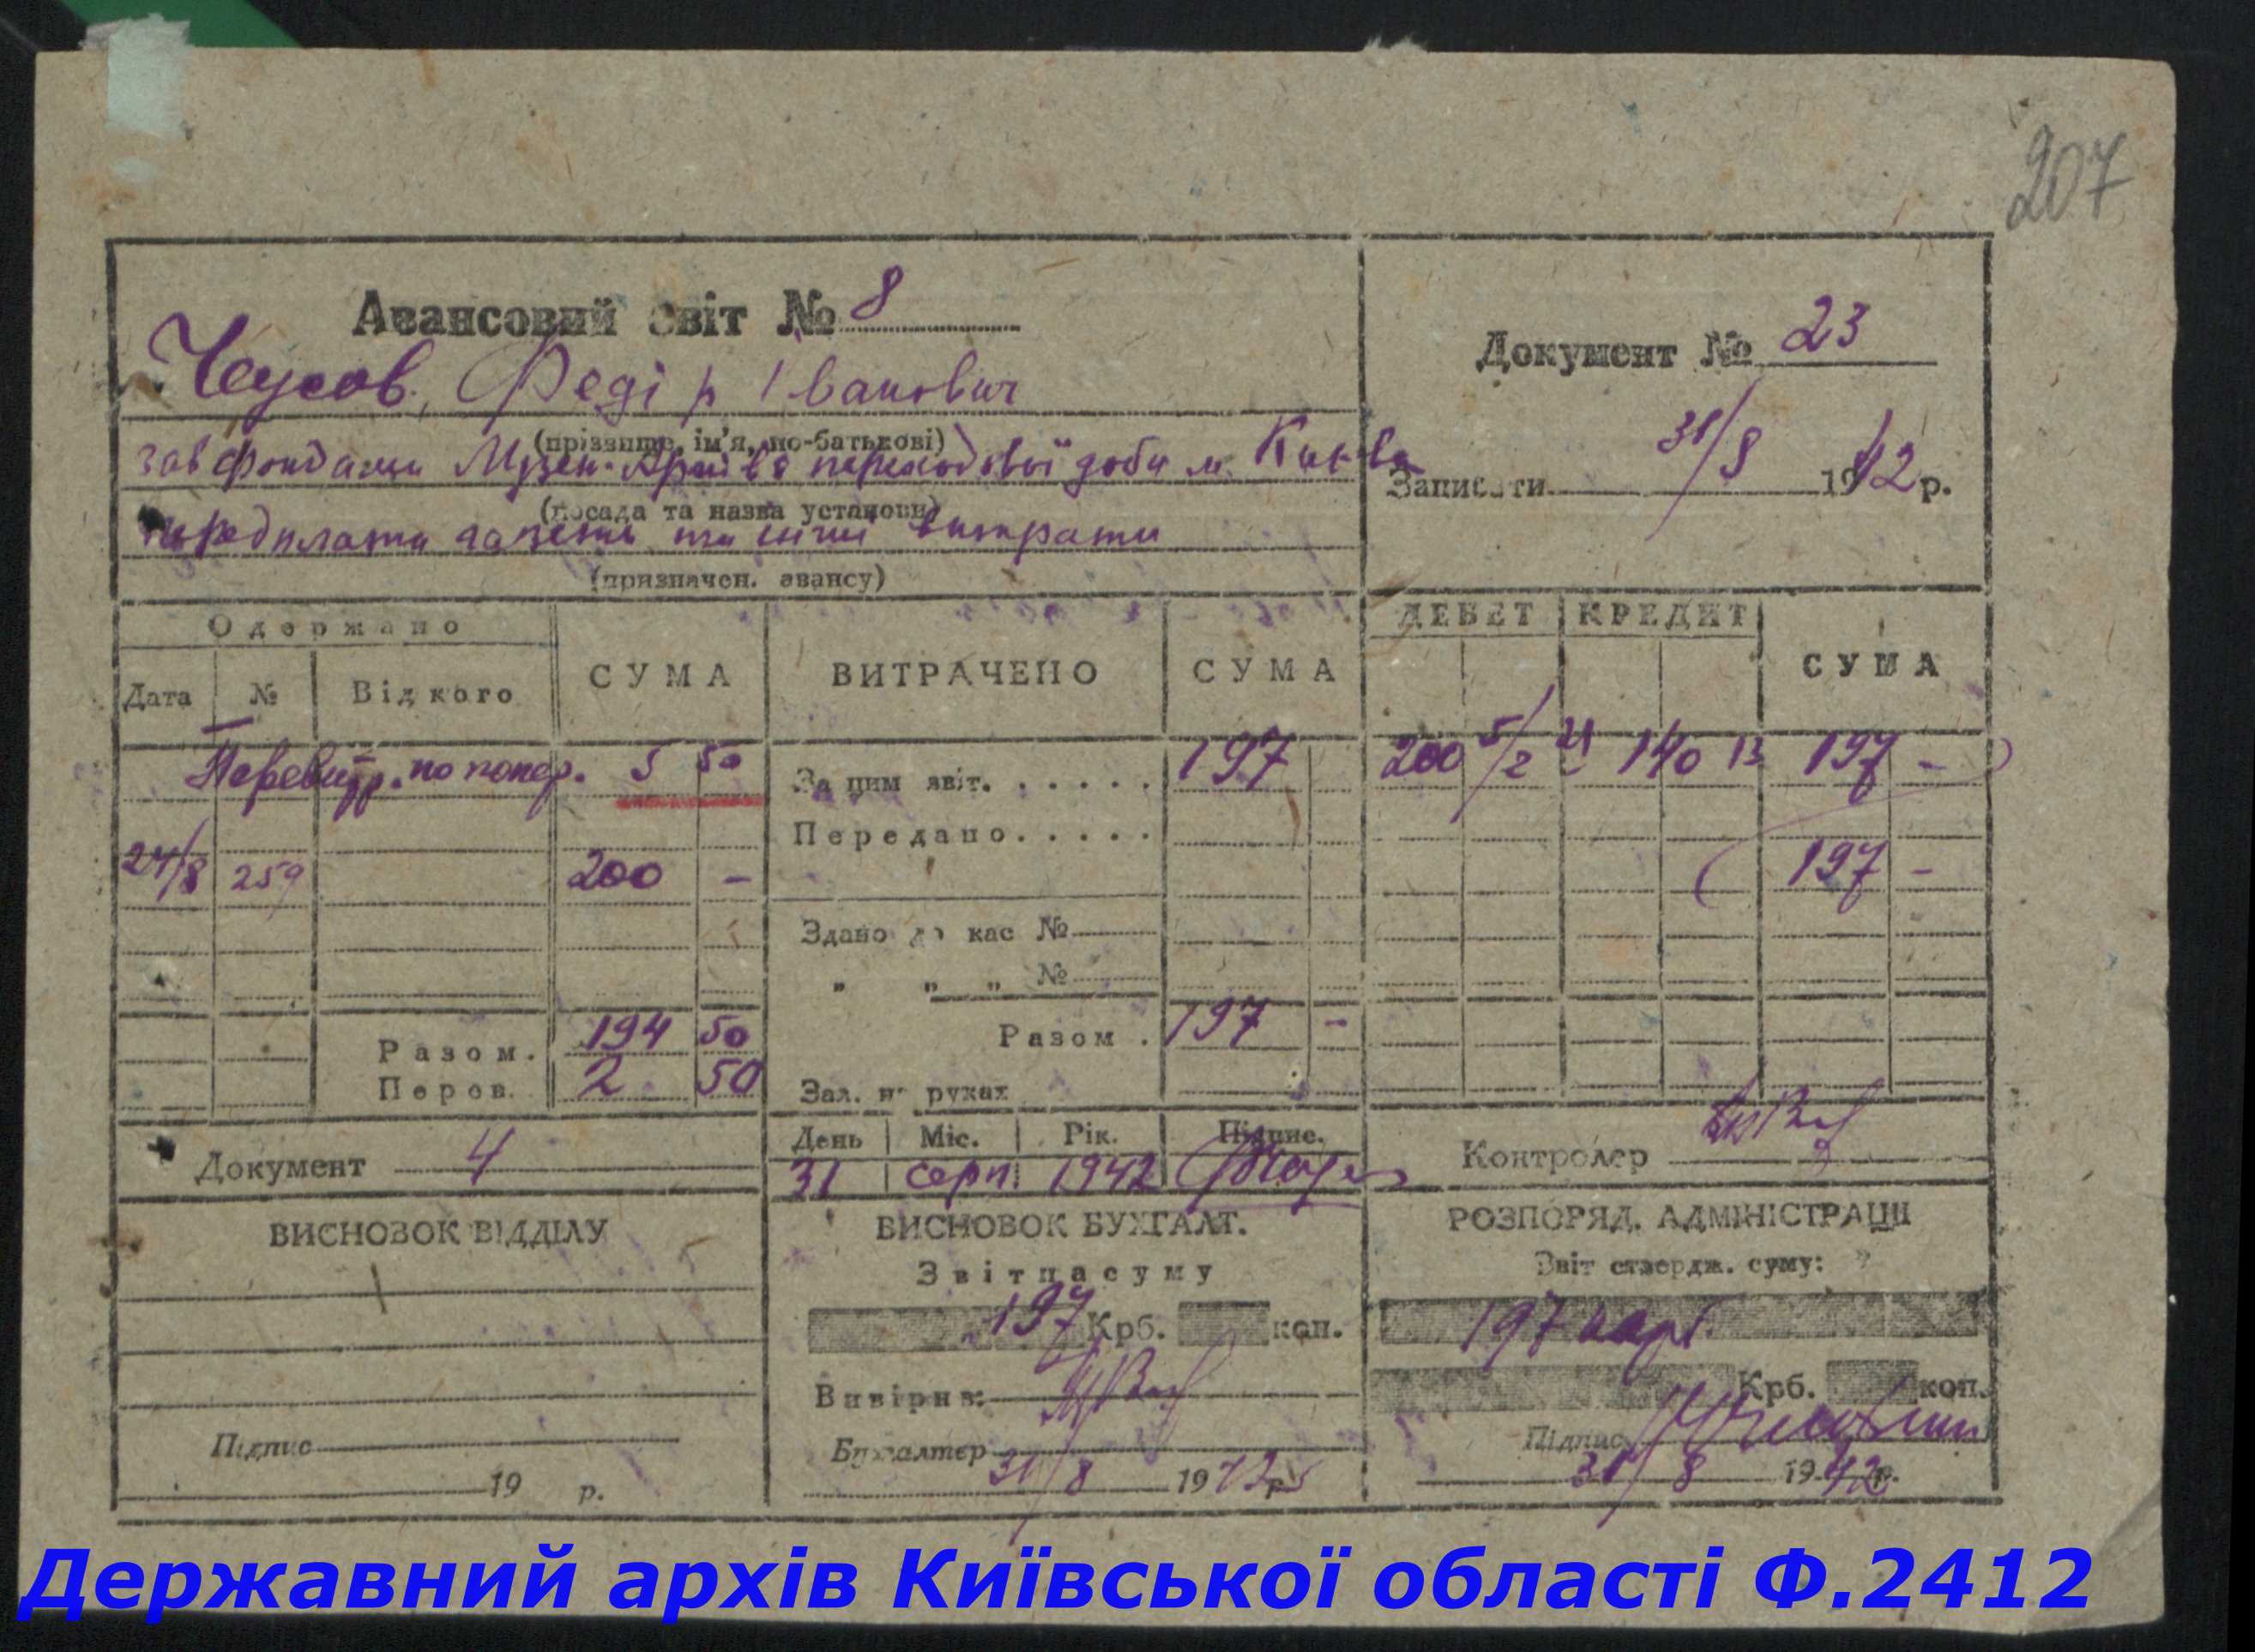 207
Авансовий звіт № 8
Чеусов, Федір Іванович
(прізвище, ім'я, по-батькові)
зав фондами Музею-Архіва переходової доби м. Києва
(посада та назва установи)
передплата газет та інші витрати
(призначен. авансу)
Документ № 23
Записати 31/8 1942 р.
Одержано
Дата № Від кого СУМА
ВИТРАЧЕНО СУМА
ДЕБЕТ КРЕДИТ СУМА
Перевитр. по попер. 5 50
За цим звіт. 197
200 5/2 21 140 13 197 -
Передано
24/8 259 200 -
197 -
Здано до кас №
" " " №
Разом. 194 50
Разом. 197 -
Перев. 2 50
Зал. на руках
Документ 4
День Міс. Рік. Підпис.
31 серп. 1942
Контролер
ВИСНОВОК ВІДДІЛУ
Підпис
19 р.
ВИСНОВОК БУХГАЛТ.
Звіт на суму
197 Крб. коп.
Вивірив:
Бухгалтер
31/8 1942 р.
РОЗПОРЯД. АДМІНІСТРАЦІЇ
Звіт ствердж. суму:
197 карб.
Крб. коп.
Підпис
31/8 1942 р.
Державний архів Київської області Ф.2412